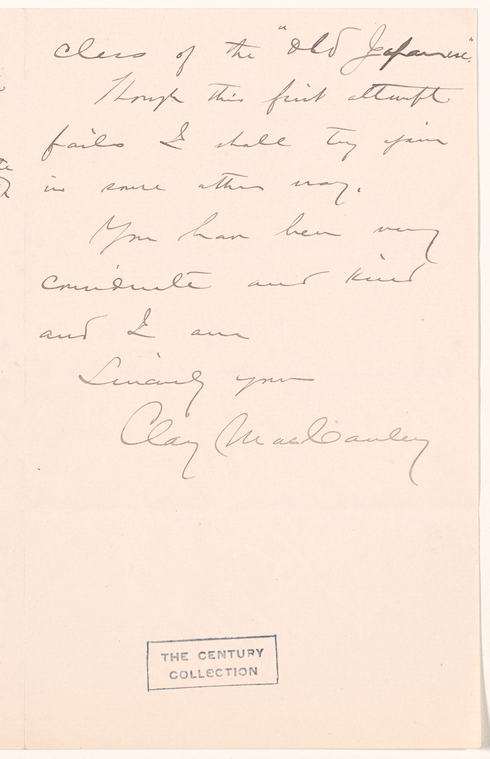 class of the "Old Japanese".
Though this first attempt
fails I shall try again
in some other way.
You have been very
considerate and kind
and I am
Sincerely yours
Clay MacCauley
THE CENTURY
COLLECTION